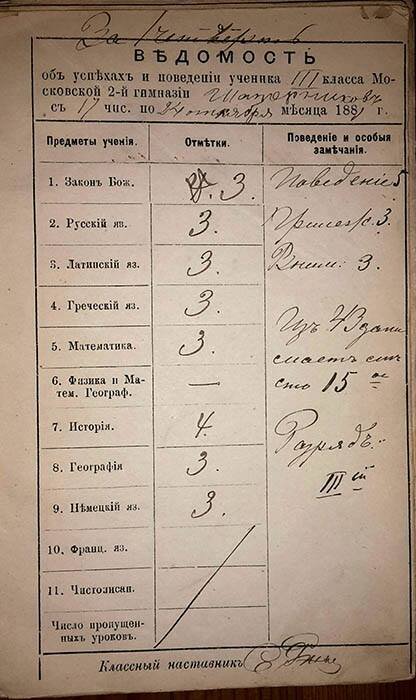 За 1 четверть
ВѢДОМОСТЬ
объ успѣхахъ и поведеніи ученика III класса Мо-
сковской 2-й гимназіи
съ 17 чис. по 24 октября мѣсяца 1881 г.
Предметы ученія.
Отмѣтки.
Поведеніе и особыя замѣчанія.
1. Законъ Бож. 3. Поведеніе 5
2. Русскій яз. 3. Прилеж. 3.
3. Латинскій яз. 3. Вним: 3.
4. Греческій яз. 3.
5. Математика. 3. Изъ 43 зани
6. Физика и Ма- — маетъ мѣ
тем. Географ. сто 15 ое
7. Исторія. 4. Разрядъ:
8. Географія 3. III ій
9. Нѣмецкій яз. 3.
10. Франц. яз.
11. Чистописан.
Число пропущен-
ныхъ уроковъ.
Классный наставникъ